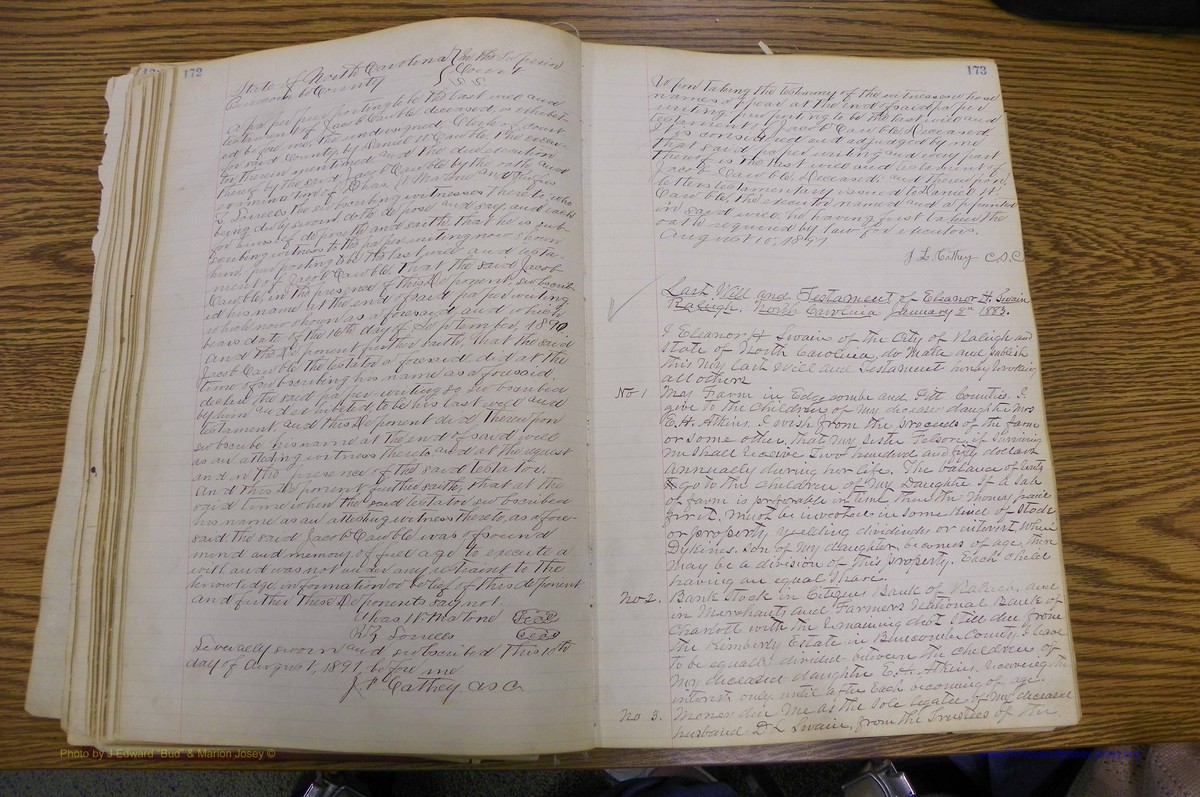 172
State of North Carolina } In the Superior
Buncombe County } Court
S.S.
A paper purporting to be the last will and
testament of Jacob Cauble deceased, is exhibit-
ed before me, the undersigned, Clerk of court
for said County by Daniel W. Cauble the execu-
tor therein mentioned and the due execution
thereof by the said Jacob Cauble by the oath and
examination of Chas W Malone and
the subscribing witnesses thereto, who
being duly sworn doth depose and say, and each
for himself deposeth and saith, that he is sub-
scribing witness to the paper writing now shown
him purporting to be the last will and testa-
ment of Jacob Cauble, that the said Jacob
Cauble, in the presence of this deponent, subscrib-
ed his name at the end of said paper writing
which now shown as aforesaid and which
bears date of the 16th day of September, 1890,
And the deponent further saith, that the said
Jacob Cauble the testator aforesaid did at the
time of subscribing his name as aforesaid,
declare the said paper writing so subscribed
by him and exhibited, to be his last will and
testament, and this deponent did thereupon
subscribe his name at the end of said will
as an attesting witness thereto and at the request
and in the presence of the said testator.
And this deponent further saith, that at the
said time when the said testator subscribed
his name as an attesting witness thereto, as afore-
said the said Jacob Cauble was of sound
mind and memory, of full age to execute a
will and was not under any restraint to the
knowledge, information or belief of this deponent
and further these deponents say not.
Chas W Malone Seal
Seal
Severally sworn and subscribed this 10th
day of August, 1891, before me
J L Cathey CSC
173
Upon taking the testimony of the witnesses whose
names appear at the end of said paper
writing purporting to be the last will and
testament of Jacob Cauble, Deceased,
It is considered and adjudged by me
that said paper writing and every part
thereof is the last will and testament of
Jacob Cauble, Deceased, and thereupon
letters testamentary issued to Daniel W.
Cauble, the executor named and appointed
in said will, he having first taken the
oath required by law for executors.
August 10, 1891
J L Cathey C.S.C
Last Will and Testament of Eleanor H. Swain
Raleigh, North Carolina January 8th 1883.
I Eleanor H Swain of the City of Raleigh and
State of North Carolina, do Make and publish
this My Last Will and Testament hereby revoking
all others
No 1 My Farm in Edgecombe and Pitt Counties. I
give to the Children of My deceased daughter Mrs
E. H. Atkins. I wish from the proceeds of the farm
or some other, that My Sister if Surviving
me Shall receive Two hundred and fifty dollars
annually during her life. The balance of rents
to go to the children of My Daughter. If a Sale
of farm is preferable in time then the Money
first, must be invested in some kind of Stock
or property, yielding dividends or interest. When
Dykins. Son of My daughter, becomes of age, there
may be a division of this property. Each child
having an equal Share.
No 2. Bank Stock in Citizens Bank of Raleigh, and
in Merchants and Farmers National Bank of
Charlott with the remaining debt Still due from
the Kimberly Estate in Buncombe County I leave
to be equally divided between the children of
My deceased daughter E. H. Atkins. receiving the
interest only until after Each becoming of age.
No 3. Money due Me as the Sole legatee of My deceased
husband D. L Swain, from the Trustees of the
Photo by J Edward "Bud" & Marion Josey ©